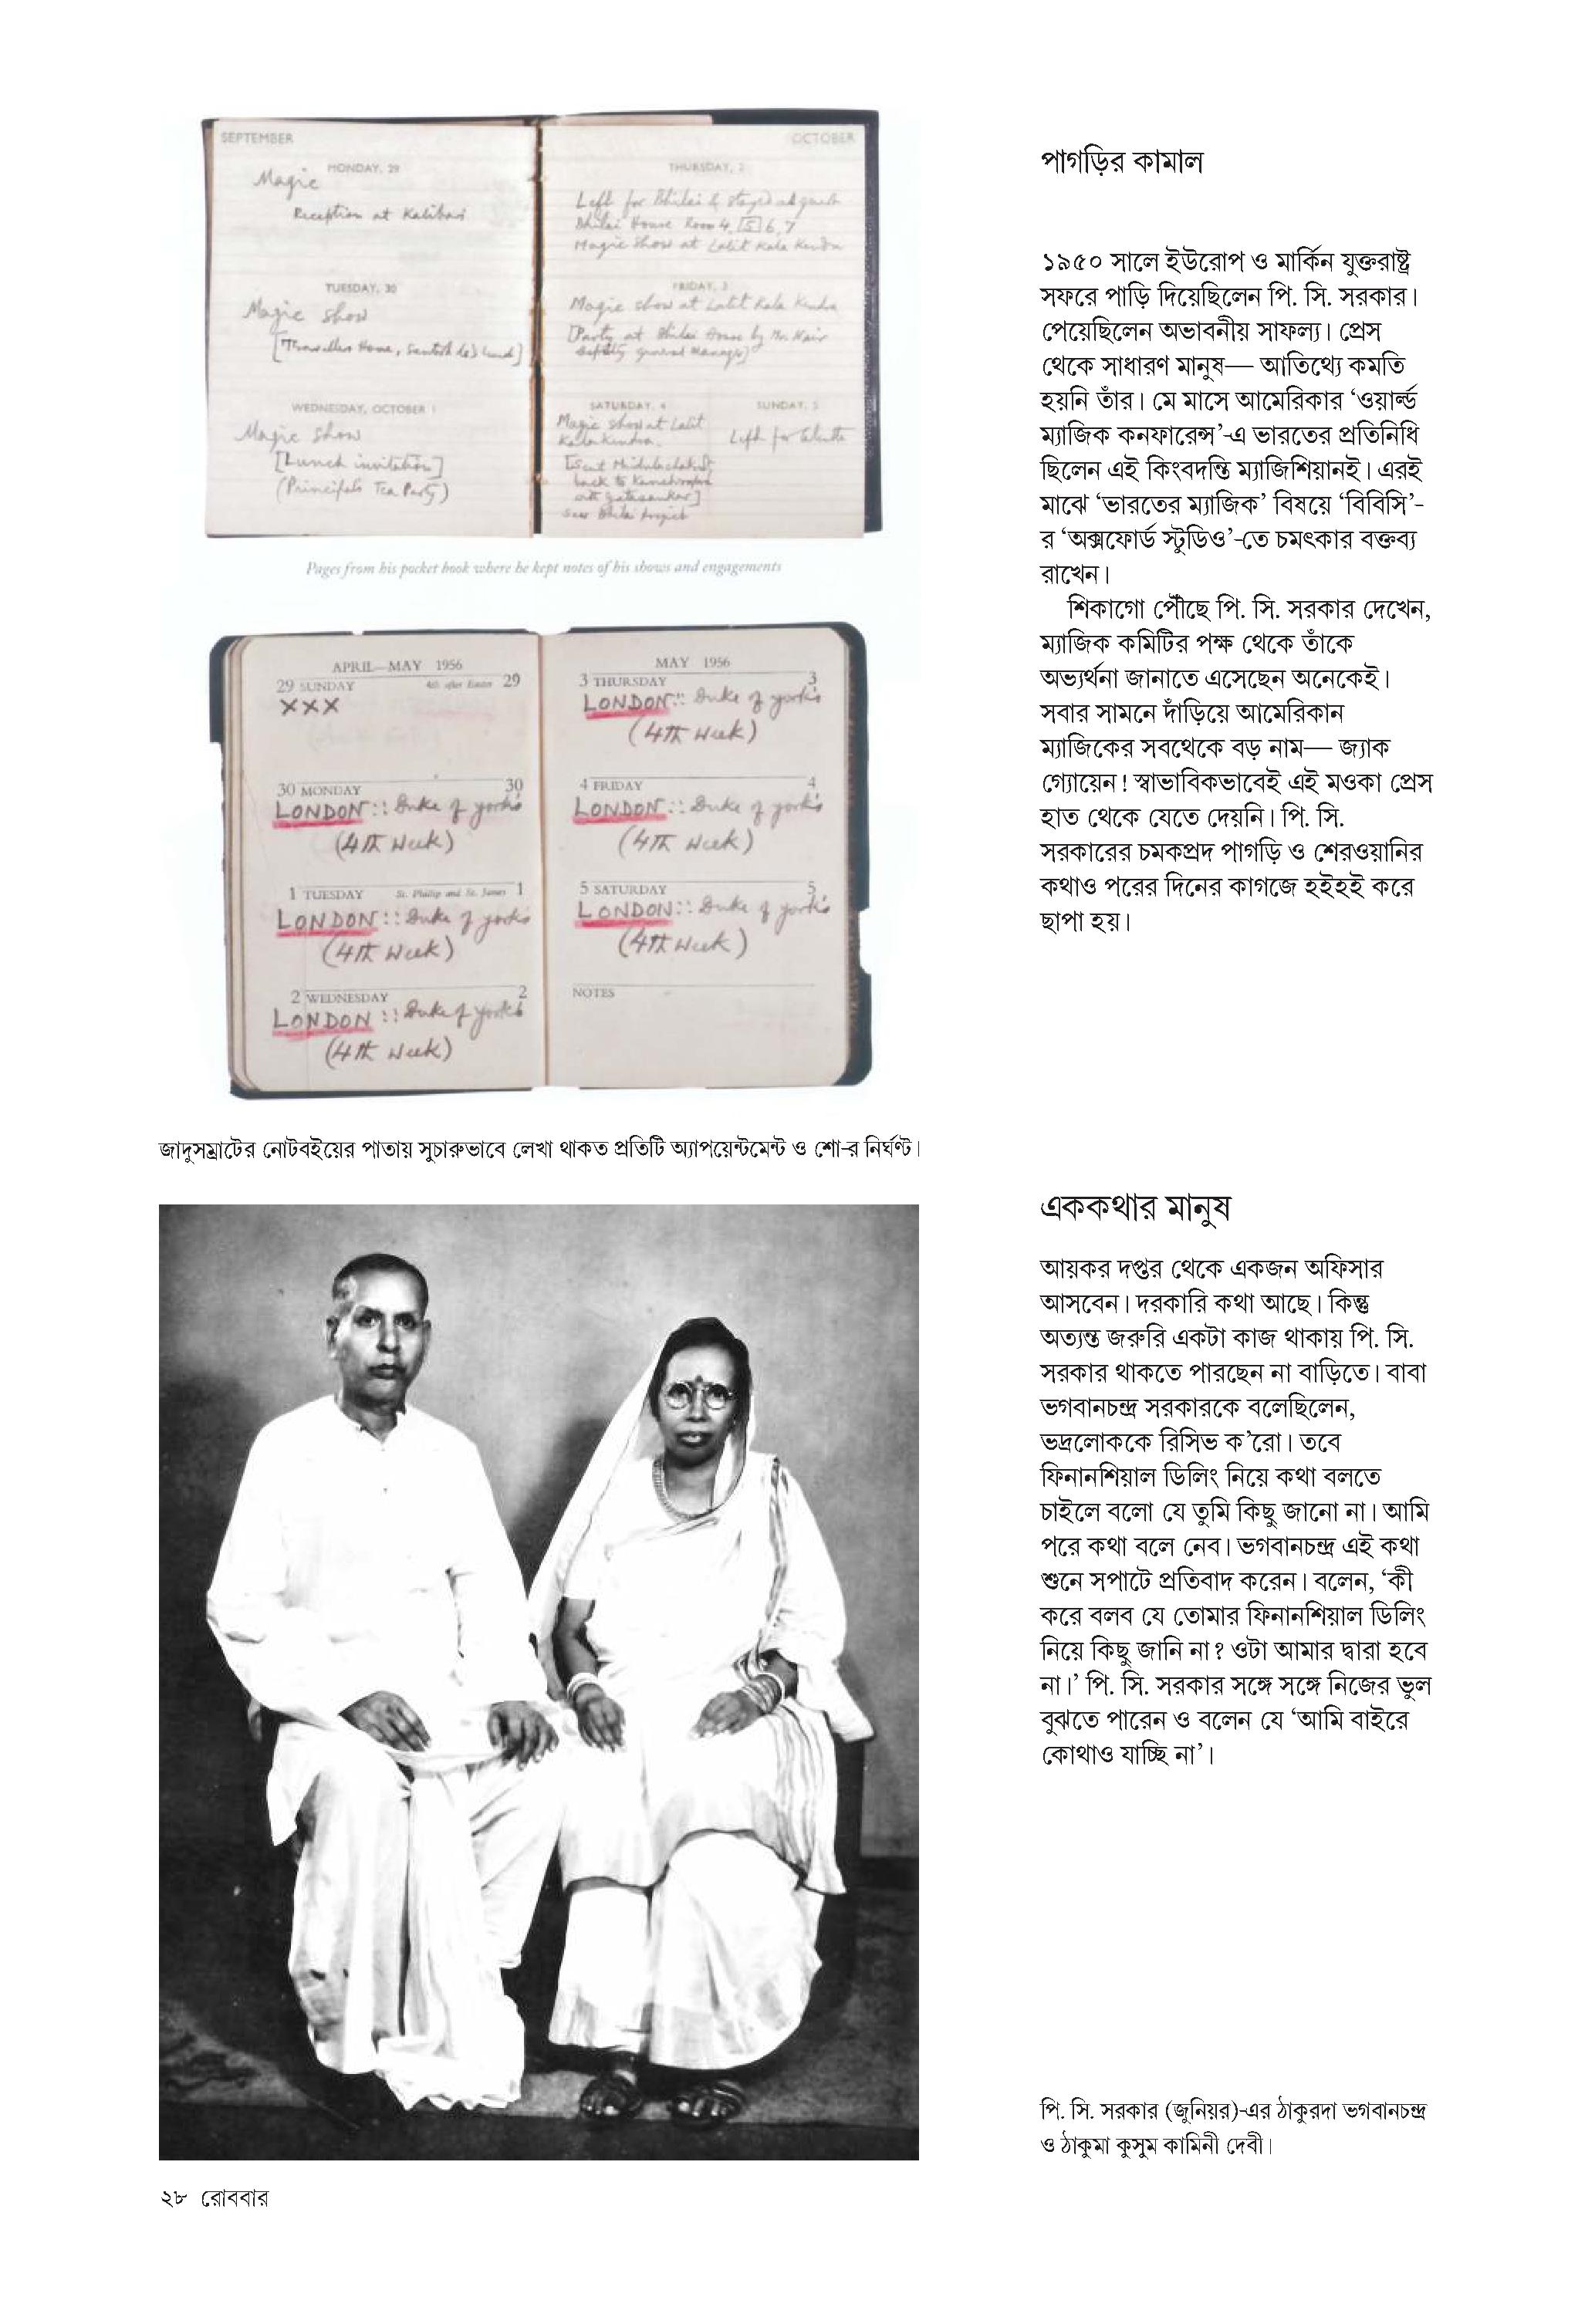 SEPTEMBER
MONDAY, 29
Magic
Reception at Kalibari
TUESDAY, 30
Magic show
[Travellers Home,
WEDNESDAY, OCTOBER 1
Magic show
[Lunch invitation]
(Principal's Tea Party)
OCTOBER
THURSDAY, 2
Left for Bhilai & stayed at
Bhilai House Room 4, 5 6, 7
Magic show at Lalit Kala Kendra
FRIDAY, 3
Magic show at Lalit Kala Kendra
[Party at Bhilai House by Mr. Nair
deputy general Manager]
SATURDAY, 4
Magic show at Lalit
Kala Kendra.
[Sent
back to
saw Bhilai Project
SUNDAY, 5
Left for Calcutta
Pages from his pocket book where he kept notes of his shows and engagements
APRIL—MAY 1956
29 SUNDAY 4th after Easter 29
XXX
30 MONDAY 30
LONDON :: Duke of york's
(4th Week)
1 TUESDAY St. Philip and St. James 1
LONDON :: Duke of york's
(4th Week)
2 WEDNESDAY 2
LONDON :: Duke of york's
(4th Week)
MAY 1956
3 THURSDAY 3
LONDON :: Duke of york's
(4th Week)
4 FRIDAY 4
LONDON :: Duke of york's
(4th Week)
5 SATURDAY 5
LONDON :: Duke of york's
(4th Week)
NOTES
জাদুসম্রাটের নোটবইয়ের পাতায় সুচারুভাবে লেখা থাকত প্রতিটি অ্যাপয়েন্টমেন্ট ও শো-র নির্ঘণ্ট।
পাগড়ির কামাল
১৯৫০ সালে ইউরোপ ও মার্কিন যুক্তরাষ্ট্র
সফরে পাড়ি দিয়েছিলেন পি. সি. সরকার।
পেয়েছিলেন অভাবনীয় সাফল্য। প্রেস
থেকে সাধারণ মানুষ— আতিথ্যে কমতি
হয়নি তাঁর। মে মাসে আমেরিকার ‘ওয়ার্ল্ড
ম্যাজিক কনফারেন্স’-এ ভারতের প্রতিনিধি
ছিলেন এই কিংবদন্তি ম্যাজিশিয়ানই। এরই
মাঝে ‘ভারতের ম্যাজিক’ বিষয়ে ‘বিবিসি’-
র ‘অক্সফোর্ড স্টুডিও’-তে চমৎকার বক্তব্য
রাখেন।
শিকাগো পৌঁছে পি. সি. সরকার দেখেন,
ম্যাজিক কমিটির পক্ষ থেকে তাঁকে
অভ্যর্থনা জানাতে এসেছেন অনেকেই।
সবার সামনে দাঁড়িয়ে আমেরিকান
ম্যাজিকের সবথেকে বড় নাম— জ্যাক
গ্যোয়েন! স্বাভাবিকভাবেই এই মওকা প্রেস
হাত থেকে যেতে দেয়নি। পি. সি.
সরকারের চমকপ্রদ পাগড়ি ও শেরওয়ানির
কথাও পরের দিনের কাগজে হইহই করে
ছাপা হয়।
এককথার মানুষ
আয়কর দপ্তর থেকে একজন অফিসার
আসবেন। দরকারি কথা আছে। কিন্তু
অত্যন্ত জরুরি একটা কাজ থাকায় পি. সি.
সরকার থাকতে পারছেন না বাড়িতে। বাবা
ভগবানচন্দ্র সরকারকে বলেছিলেন,
ভদ্রলোককে রিসিভ ক’রো। তবে
ফিনানশিয়াল ডিলিং নিয়ে কথা বলতে
চাইলে বলো যে তুমি কিছু জানো না। আমি
পরে কথা বলে নেব। ভগবানচন্দ্র এই কথা
শুনে সপাটে প্রতিবাদ করেন। বলেন, ‘কী
করে বলব যে তোমার ফিনানশিয়াল ডিলিং
নিয়ে কিছু জানি না? ওটা আমার দ্বারা হবে
না।’ পি. সি. সরকার সঙ্গে সঙ্গে নিজের ভুল
বুঝতে পারেন ও বলেন যে ‘আমি বাইরে
কোথাও যাচ্ছি না’।
পি. সি. সরকার (জুনিয়র)-এর ঠাকুরদা ভগবানচন্দ্র
ও ঠাকুমা কুসুম কামিনী দেবী।
২৮ রোববার